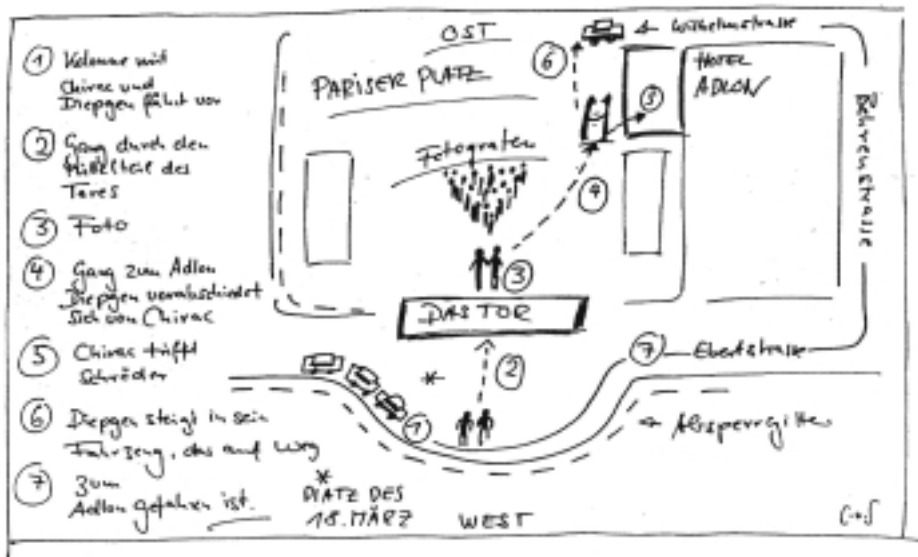 ① Kolonne mit
Chirac und
Diepgen fährt vor
② Gang durch den
Mittelteil des
Tores
③ Foto
④ Gang zum Adlon
Diepgen verabschiedet
sich von Chirac
⑤ Chirac trifft
Schröder
⑥ Diepgen steigt in sein
Fahrzeug, das auf Weg
⑦ zum
Adlon gefahren ist.
OST
Wilhelmstrasse
⑥
PARISER PLATZ
HOTEL
ADLON
⑤
Behrenstrasse
Fotografen
④
③
DAS TOR
⑦ Ebertstrasse
*
②
①
Absperrgitter
*
PLATZ DES
18. MÄRZ
WEST